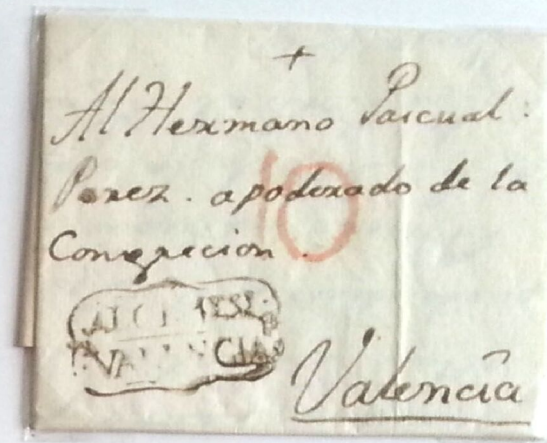 +
Al Hermano Pascual
Perez. apoderado de la
Congrecion.
10
VALENCIA
Valencia